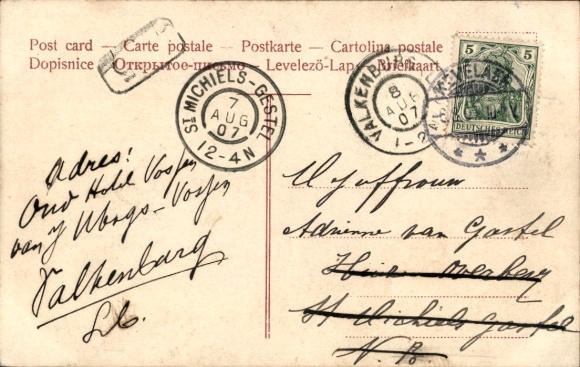 Post card — Carte postale — Postkarte — Cartolina postale
Dopisnice — Открытое-письмо — Levelező-Lap — Briefkaart
ST MICHIELS-GESTEL
7
AUG
07
12-4N
VALKENBURG
8
AUG
07
1-2
KEVELAER
5 5
DEUTSCHES REICH
Adres:
Oud Hotel Vossen
van
Valkenburg
Lb.
Mejuffrouw
Adrienne van Gastel
Huize Overberg
St Michiels Gestel
N. B.